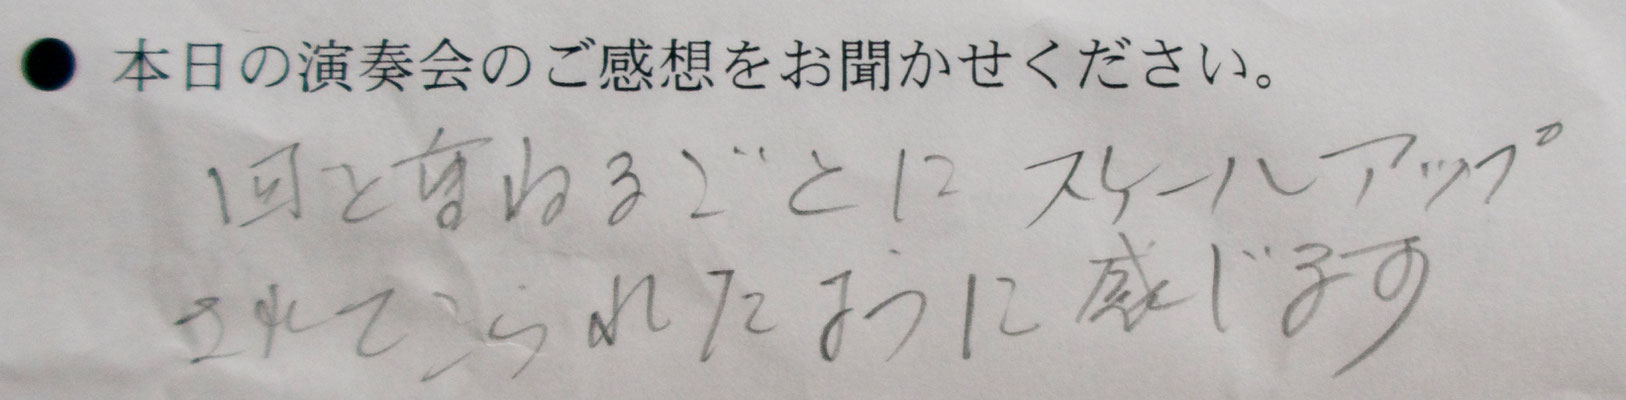 ● 本日の演奏会のご感想をお聞かせください。
回を重ねるごとにスケールアップ
されてこられたように感じます